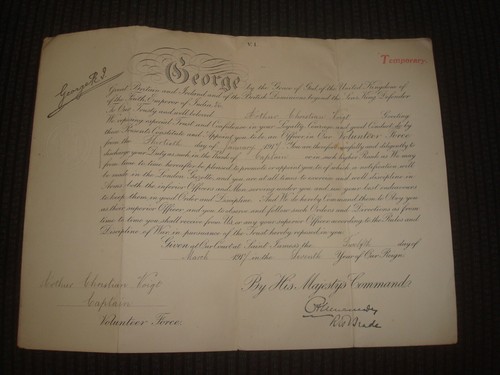 George R.I.
Temporary.
George by the Grace of God, of the United Kingdom of
Great Britain and Ireland and of the British Dominions beyond the Seas King, Defender
of the Faith, Emperor of India &c.
To Our Trusty and well beloved Arthur Christian Voigt Greeting
We reposing especial Trust and Confidence in your Loyalty, Courage, and good Conduct, do by
these Presents Constitute and Appoint you to be an Officer in Our Volunteer Force
from the Thirtieth day of January 1917. You are therefore carefully and diligently to
discharge your Duty as such in the Rank of Captain or in such higher Rank as We may
from time to time hereafter be pleased to promote or appoint you to, of which a notification will
be made in the London Gazette, and you are at all times to exercise and well discipline in
Arms both the inferior Officers and Men serving under you and use your best endeavours
to keep them in good Order and Discipline. And We do hereby Command them to Obey you
as their superior Officer, and you to observe and follow such Orders and Directions as from
time to time you shall receive from Us, or any your superior Officer, according to the Rules and
Discipline of War, in pursuance of the Trust hereby reposed in you.
Given at Our Court, at Saint James's, the Twelfth day of
March 1917 in the Seventh Year of Our Reign
By His Majesty's Command
Arthur Christian Voigt
Captain
Volunteer Force